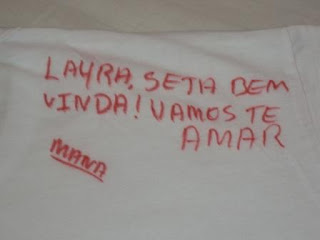 LAYRA, SEJA BEM
VINDA! VAMOS TE
AMAR
MANA